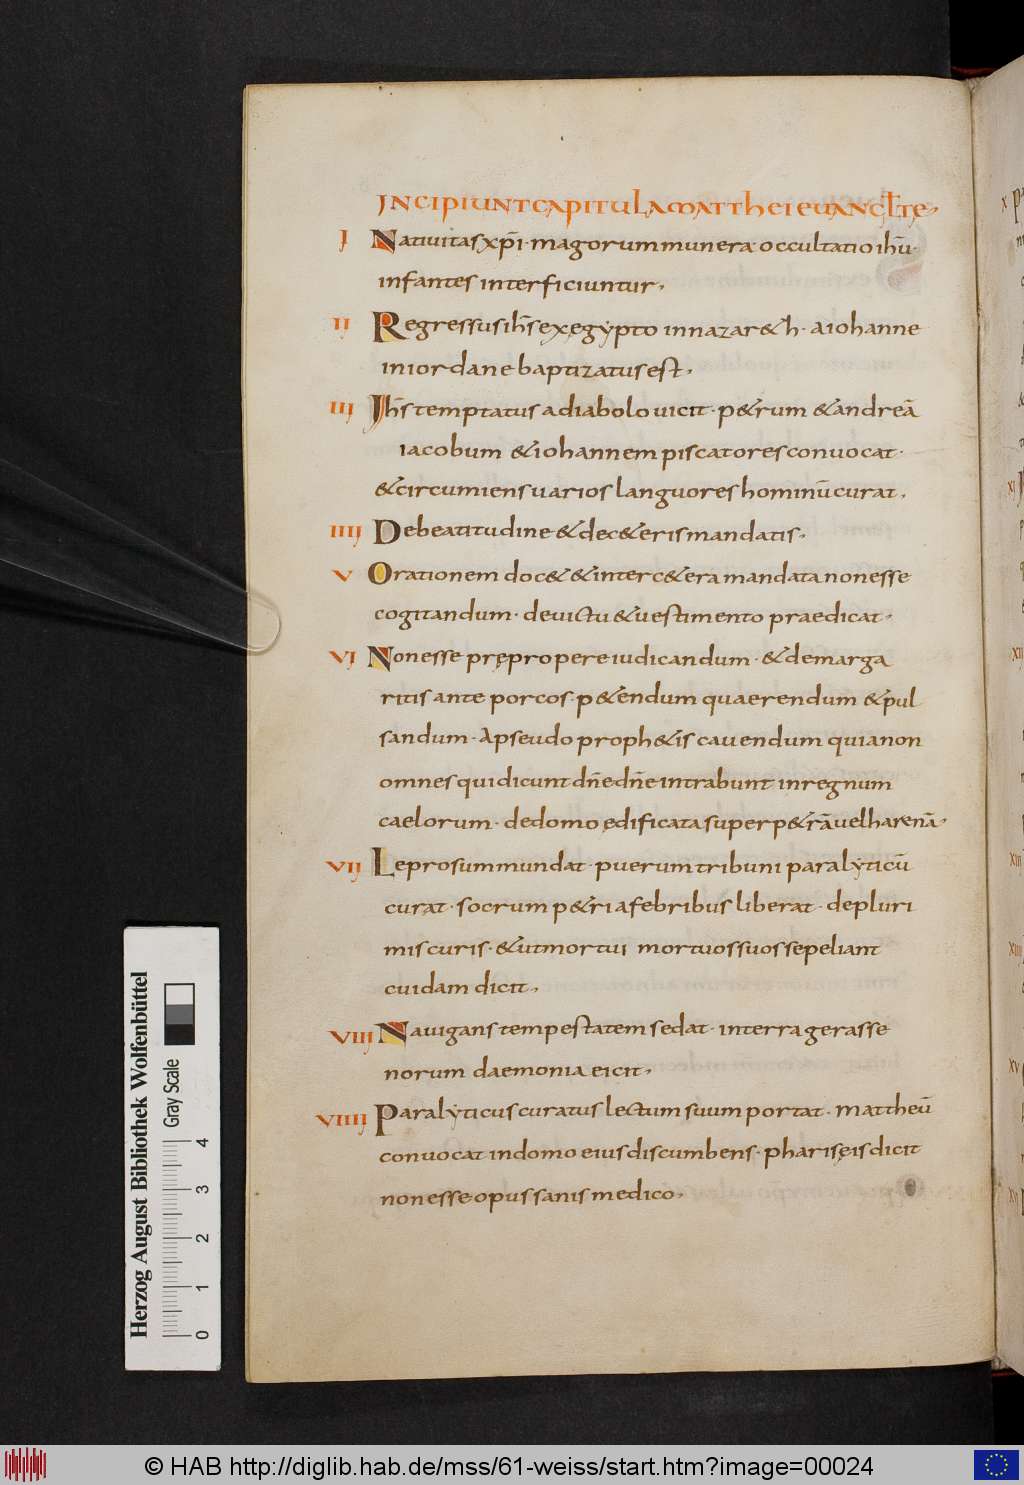 JNCIPIUNT CAPITULA MATTHEI EUANGLTE
I Natiuitas xp̄i · magorum munera occultatio ih̄u ·
infantes interficiuntur,
II Regressus ih̄s ex ęgypto in nazar&h · a iohanne
in iordane baptizatus est,
III Jh̄s temptatus a diabolo uicit · p&rum & andreā
iacobum & iohannem piscatores conuocat ·
& circumiens uarios languores hominū curat,
IIII De beatitudine & de c&eris mandatis,
V Orationem doc& & inter c&era mandata non esse
cogitandum · de uictu & uestimento praedicat ·
VI Non esse prępropere iudicandum · & de marga
ritis ante porcos · p&endum quaerendum & pul
sandum · A pseudo proph&is cauendum quia non
omnes qui dicunt dn̄e dn̄e intrabunt in regnum
caelorum · de domo ędificata super p&rā uel harenā ·
VII Leprosum mundat · puerum tribuni paralyticū
curat · socrum p&ri a febribus liberat · de pluri
mis curis · & ut mortui mortuos suos sepeliant
cuidam dicit,
VIII Nauigans tempestatem sedat · in terra gerasse
norum daemonia eicit,
VIIII Paralyticus curatus lectum suum portat · mattheū
conuocat in domo eius discumbens · pharisęis dicit
non esse opus sanis medico,
Herzog August Bibliothek Wolfenbüttel
Gray Scale
0 1 2 3 4
© HAB http://diglib.hab.de/mss/61-weiss/start.htm?image=00024